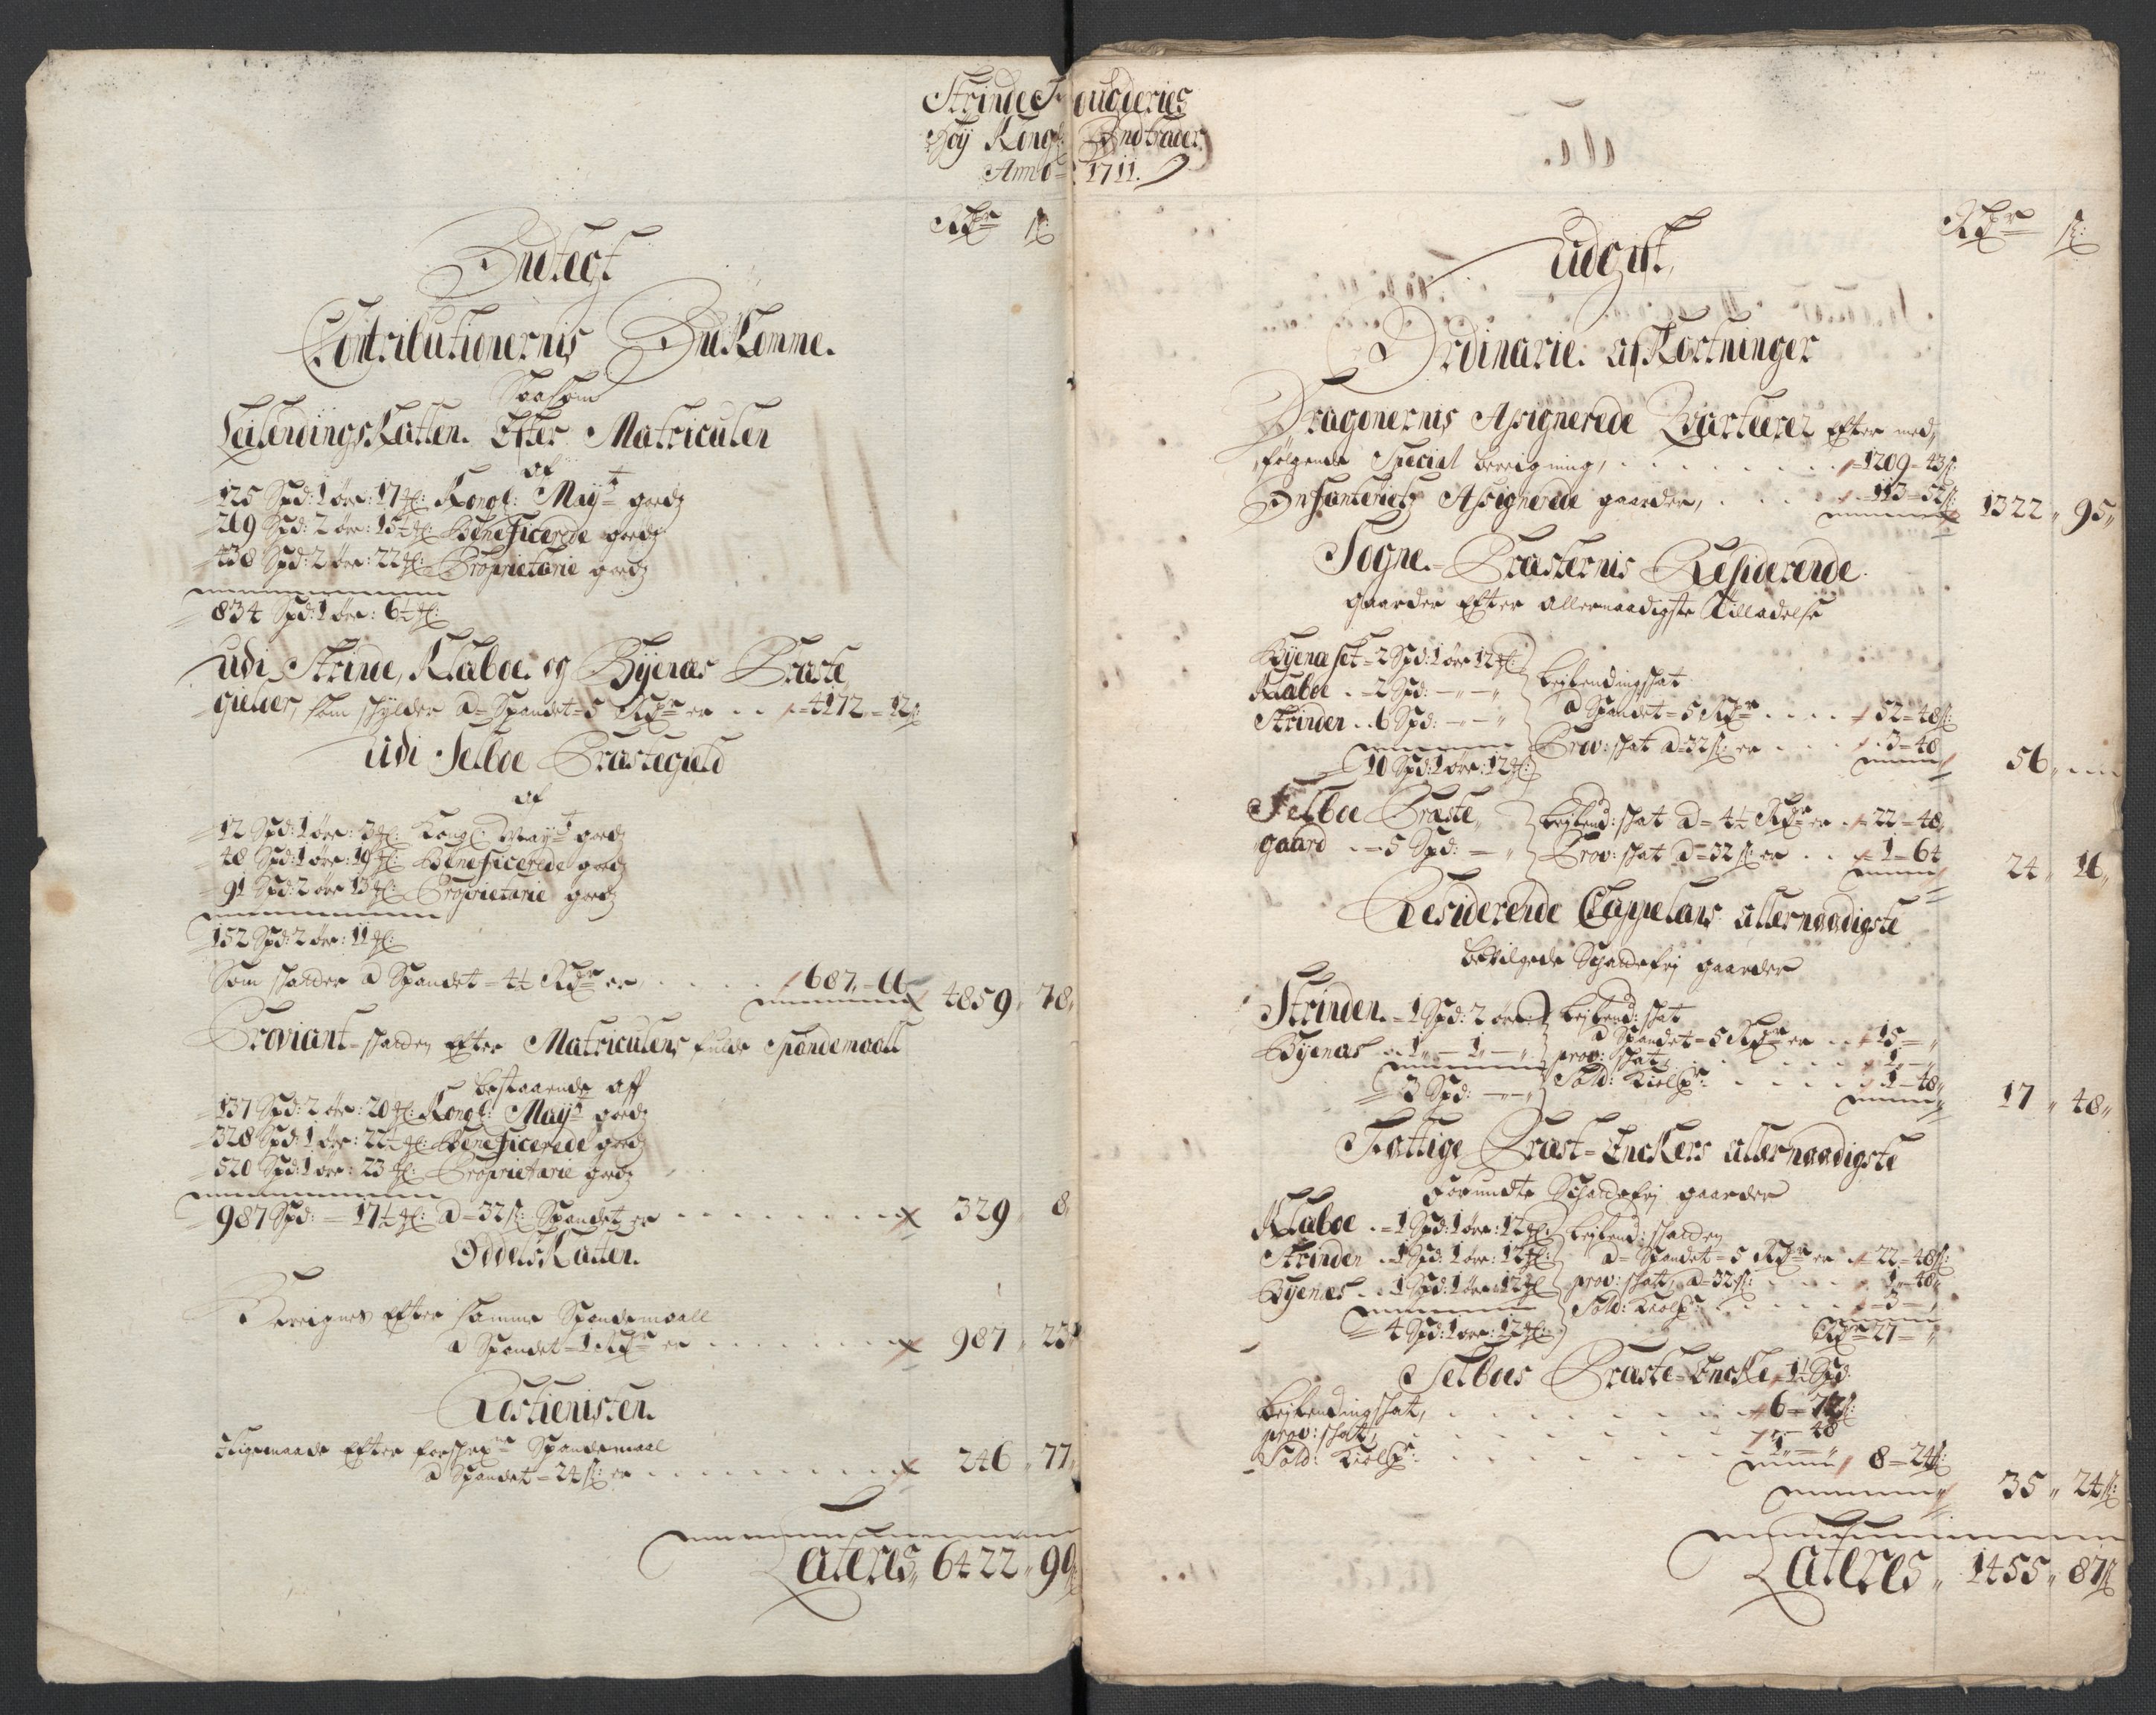 Strinde Fougderies
Höÿ Kongl: Indtrader
Anno 1711.
Rdr ß
Indtegt
Contributionernis Indkomme.
Saasom
Leilendings Skatten. Efter Matriculen
af
125 Spd: 1 öre: 17 Kongl: Maÿts godz
269 Spd: 2 öre: 15½ Beneficerede godz
438 Spd: 2 öre: 22 Proprietarie godz
834 Spd: 1 öre: 6½
udi Strinde, Klæboe og Bÿenæs Præste
gielder, som schÿlder a Spandet 5 Rdr er 4172 12ß
Udi Selboe Præstegield
af
12 Spd: 1 öre: 3 Kongl: Maÿts godz
48 Spd: 1 öre: 19 Beneficerede godz
91 Spd: 2 öre 13 Proprietarie godz
152 Spd: 2 öre: 11
Som skatter a Spandet 4½ Rdr er 687 66 4859 78
Proviant-skatten efter Matriculens fulde Spandemaall
bestaaende aff
137 Spd: 2 öre: 20 Kongl: Maÿts godz
328 Spd: 1 öre: 22½ Beneficerede godz
520 Spd: 1 öre: 23 Proprietarie godz
987 Spd: 17½ a 32ß Spandet er 329 8
Oddels Katten.
Bereignes efter samme Spandemaall
a Spandet 1 Rdr er 987 23
Rostienisten.
Ligemaade efter Spandemaal
a Spandet 24ß er 246 77
Lateres 6422 90
Rdr ß
Udgift,
Ordinarie afkortninger
Dragonernis Assignerede Qvarteerer efter med
følgende Special bereigning, 1209 43ß
Infanteriets Assignerede gaarder, 113 52ß 1322 95
Sogne-Præsternis Residerende
gaarder efter allernaadigste Tilladelse
Bÿenæset 2 Spd: 1 öre 12
Klæboe 2 Spd:
Strinden 6 Spd:
10 Spd: 1 öre: 12
Leilendingskat
a Spandet 5 Rdr 52 48ß
Prov: skat a 32ß er 3 48
56
Selboe Præste
gaard 5 Spd:
Leilend: skat a 4½ Rdr er 22 48
Prov: skat a 32ß er 1 64
24 16
Residerende Cappelans allernaadigste
bevilgede Schattefrj gaarder
Strinden 1 Spd: 2 öre
Bÿenæs 1 1
3 Spd:
Leilend: skat
a Spandet 5 Rdr er 15
prov: skat, 1
Sold: 1 48
17 48
Fattige Præst-Enckers allernaadigste
Forundte Schattefrj gaarder
Klæboe 1 Spd: 1 öre: 12
Strinden 1 Spd: 1 öre: 12
Bÿenæs 1 Spd: 1 öre: 12
4 Spd: 1 öre: 12
Leilend: skatten
a Spandet 5 Rdr er 22 48ß
prov: skatt, a 32ß 1 48
Sold: 3
Rdr 27
Selboes Præste-Encke 1½ Spd:
Leilendingskat, 6 72ß
prov: skatt, 48
Sold: 1
8 24ß
35 24ß
Lateres 1455 87ß